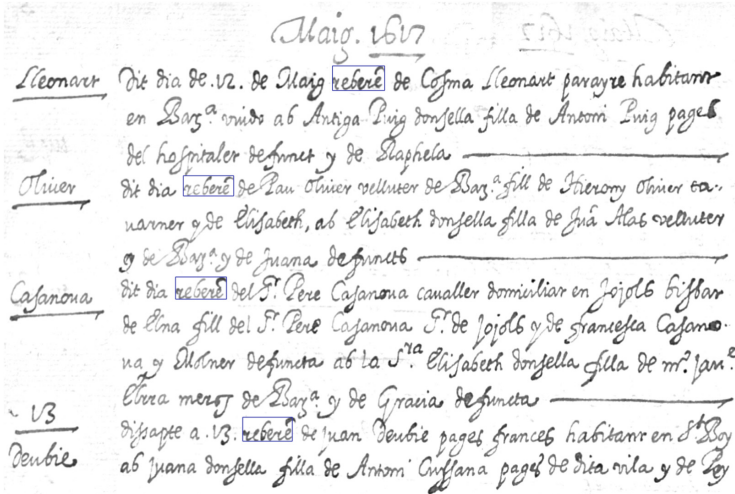 Maig. 1617
Lleonart
Dit dia de .12. de Maig reberē de Cosma Lleonart parayre habitant
en Barª viudo ab Antiga Puig donsella filla de Antoni Puig pages
del hospitalet defunct y de Raphela
Oliuer
dit dia reberē de Pau Oliuer velluter de Barª fill de Hierony Oliuer ta-
uarner y de Elisabeth, ab Elisabeth donsella filla de Juā Alas velluter
y de Barª y de Juana defuncts
Casanoua
dit dia reberē del Sr. Pere Casanoua caualler domiciliat en Jojols bisbat
de Elna fill del Sr. Pere Casanoua Sr. de Jojols y de francesca Casano-
ua y Molner defuncta ab la Sra. Elisabeth donsella filla de mº.
merȝ de Barª y de Gracia defuncta
13
dissapte a .13. reberē de Juan Deubie pages frances habitant en St Boy
Deubie
ab Juana donsella filla de Antoni Cussana pages de dita vila y de Pey